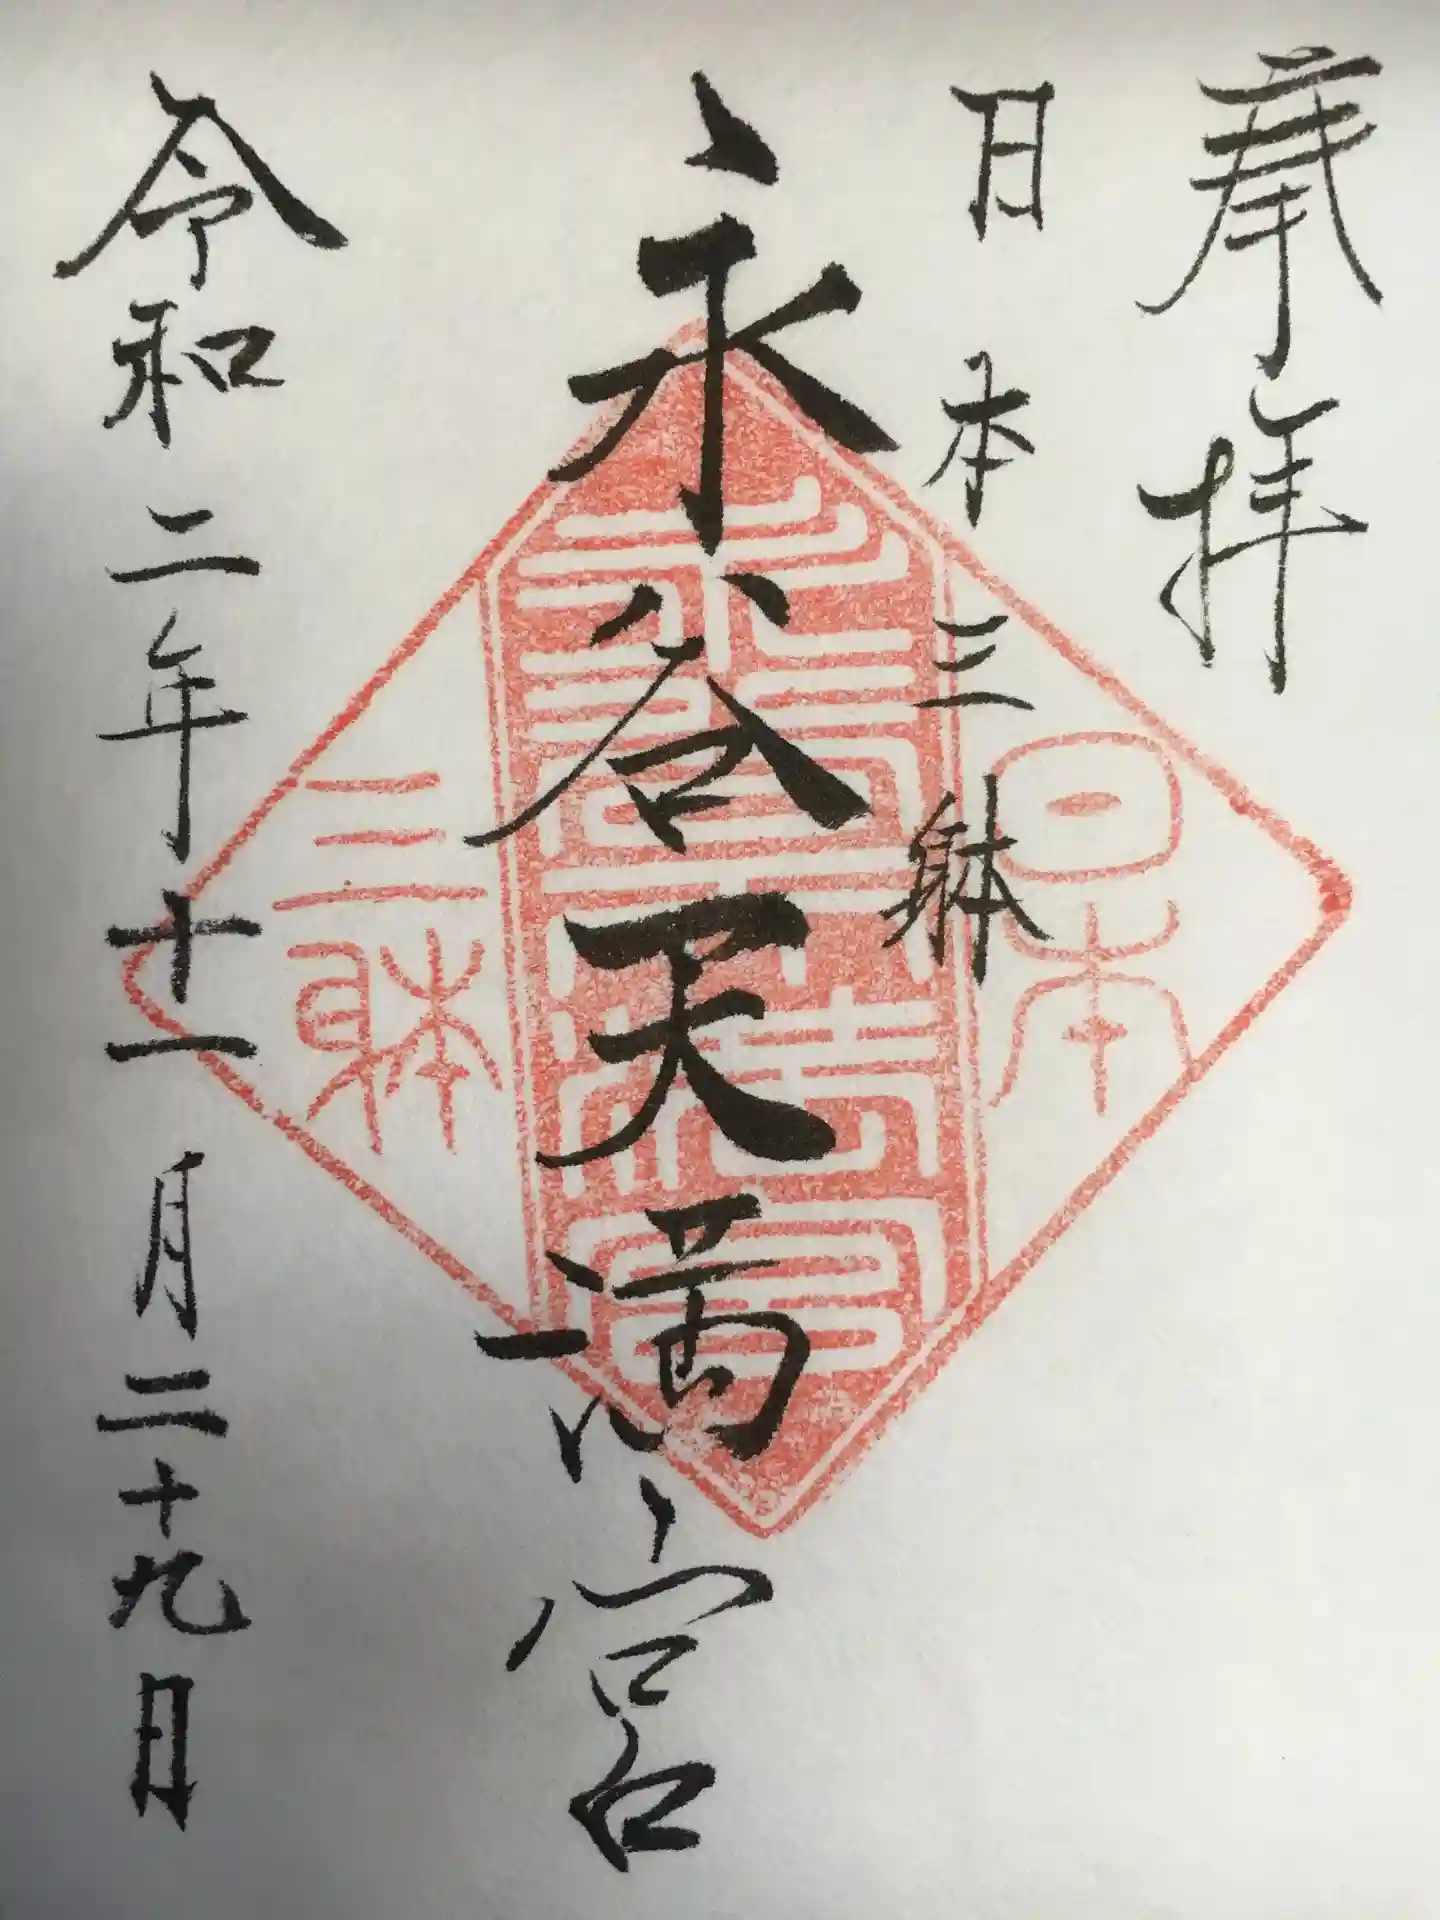 奉拝
日本三躰
永谷天満宮
令和二年十一月二十九日
日本
永谷天満宮
三躰